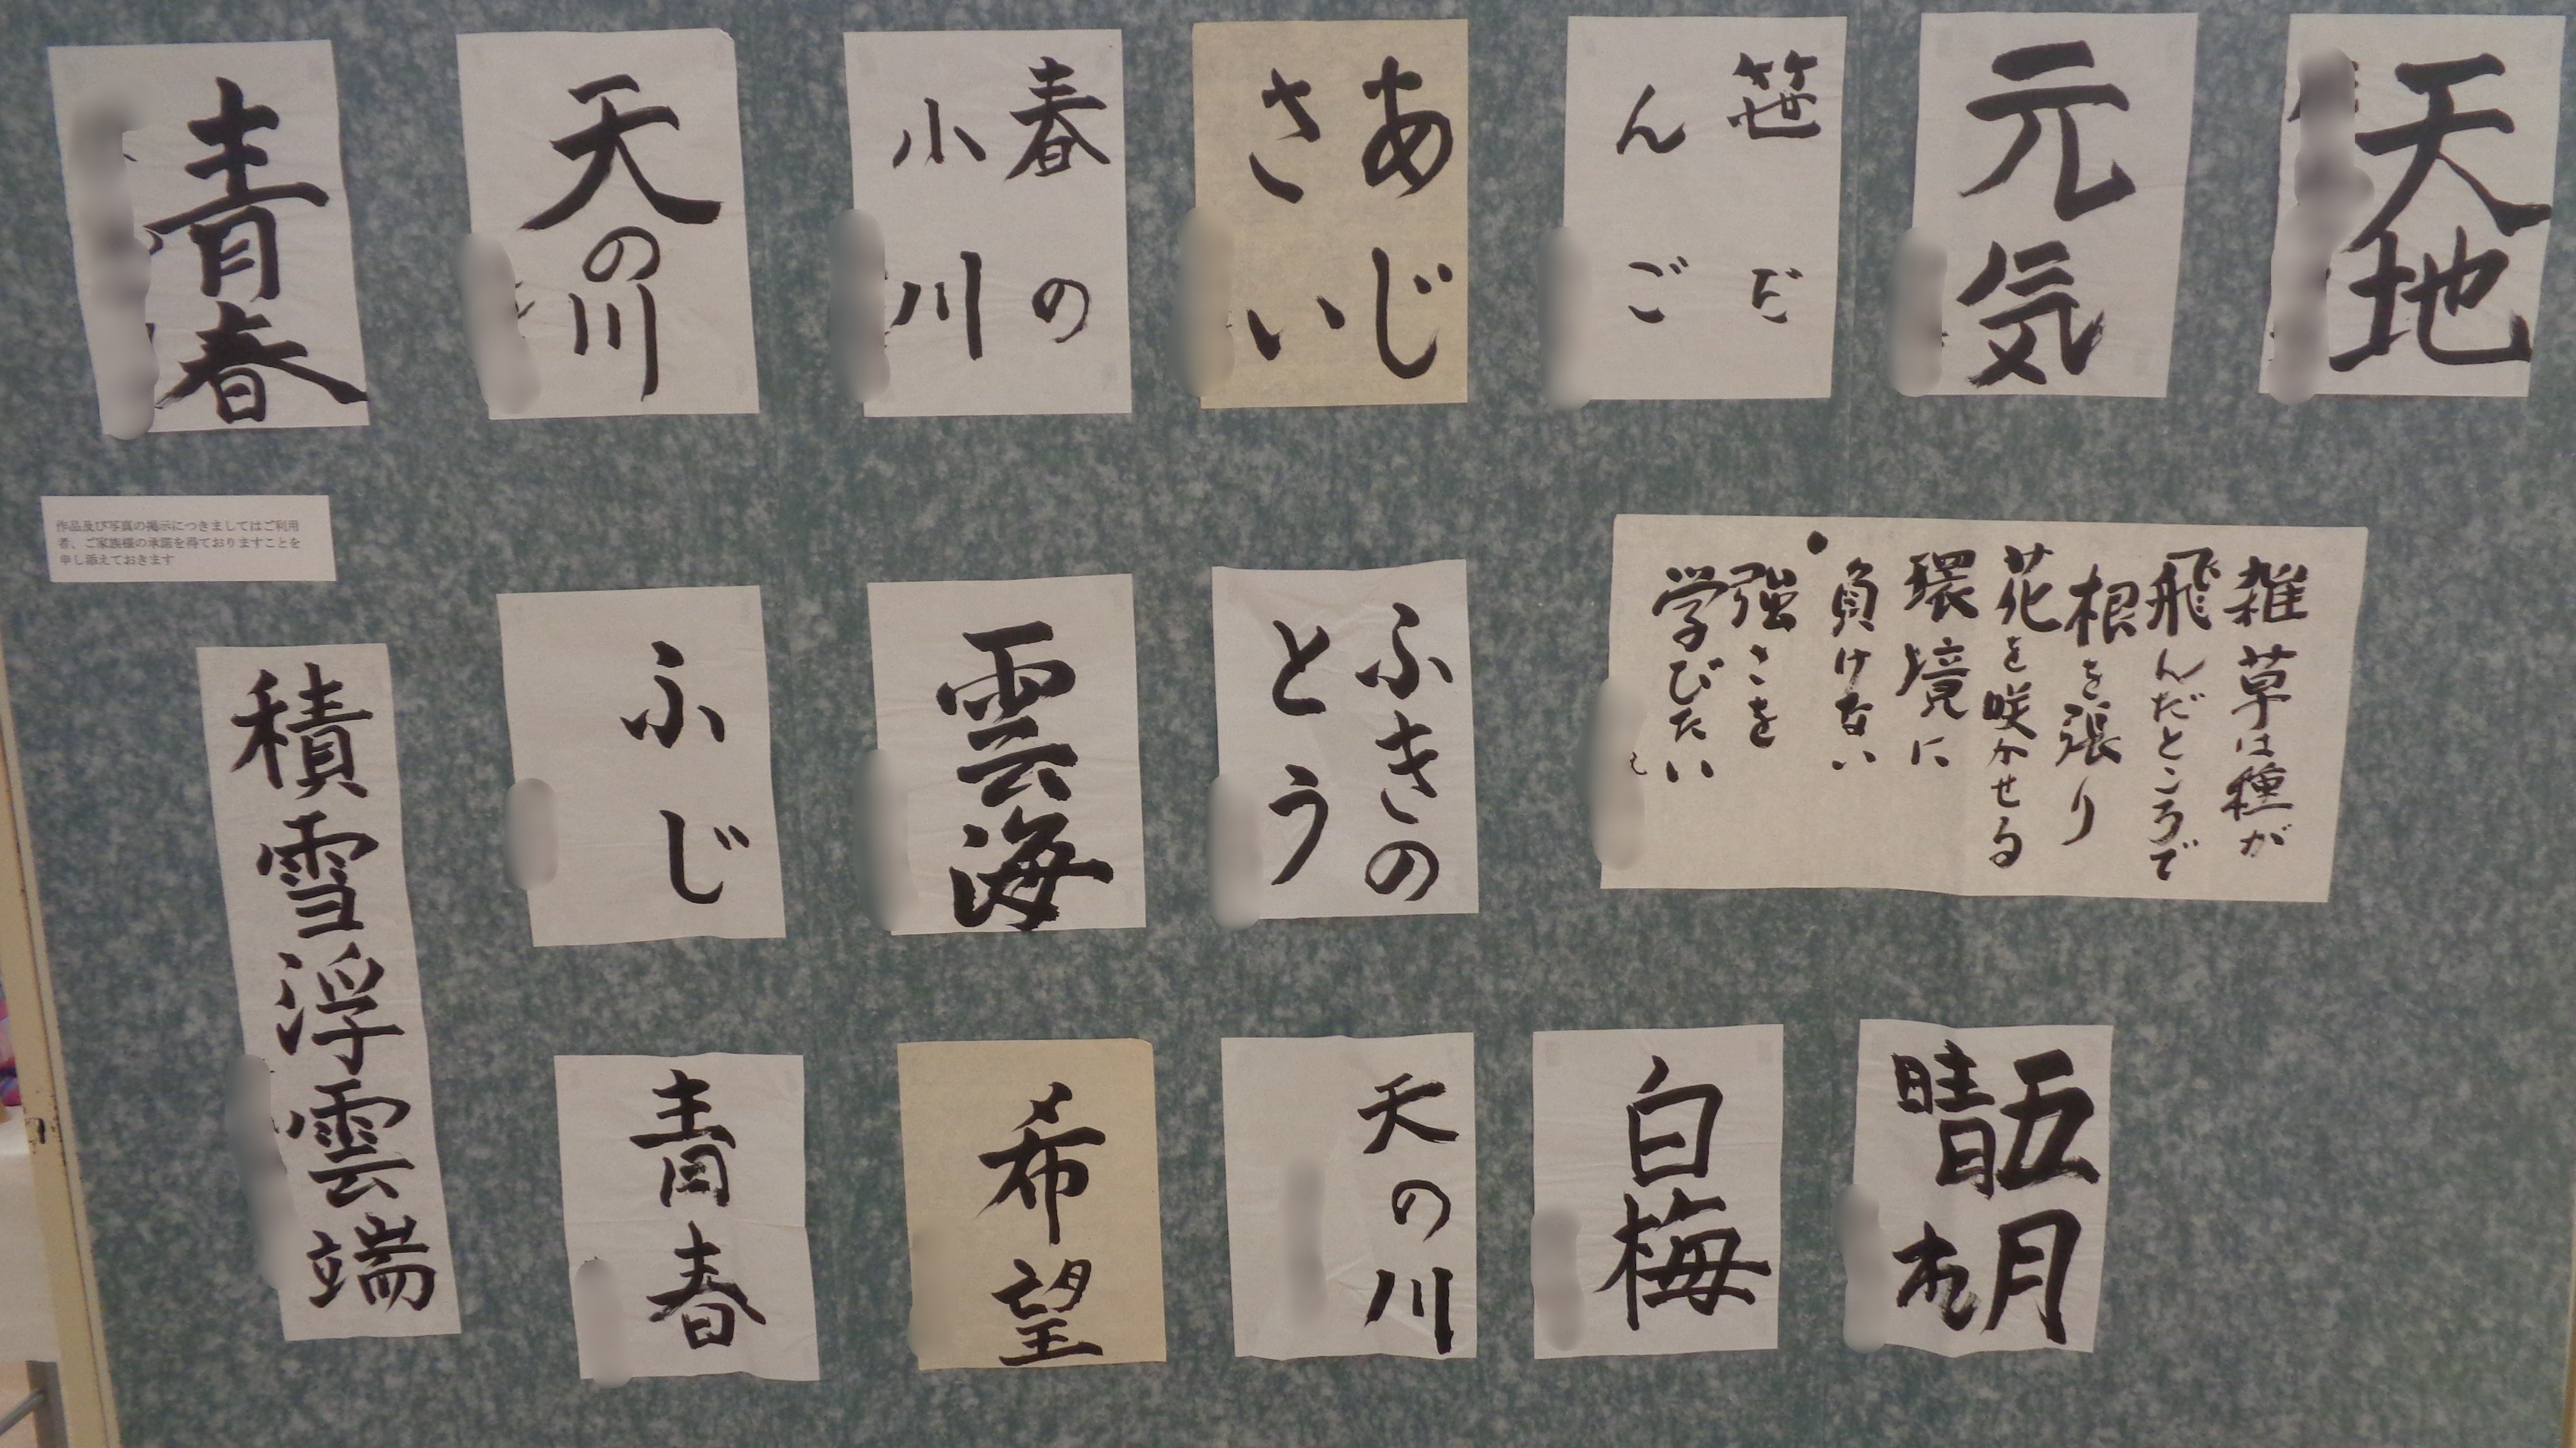 天地
元気
笹だ
んご
あじ
さい
春の
小川
天の川
青春
雑草は種が
飛んだところで
根を張り
花を咲かせる
環境に
負けない
強さを
学びたい
ふきの
とう
雲海
ふじ
作品及び写真の掲示につきましてはご利用
者、ご家族様の承諾を得ておりますことを
申し添えておきます
積雪浮雲端
五月
晴れ
白梅
天の川
希望
青春